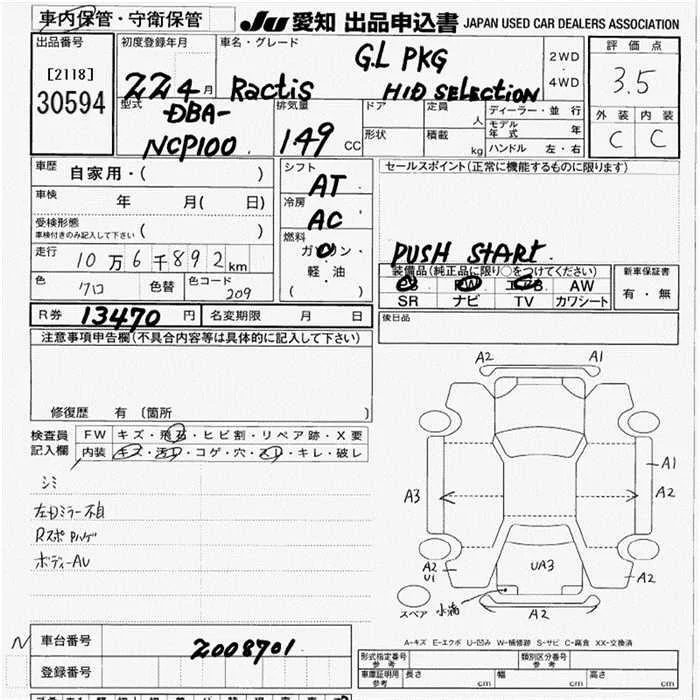 車内保管・守衛保管
JU 愛知 出品申込書 JAPAN USED CAR DEALERS ASSOCIATION
出品番号
[2118]
30594
初度登録年月
22 4 月
車名・グレード
Ractis G.L PKG
HID SELECTION
2WD
・
4WD
評価点
3.5
外装 内装
C C
型式
DBA-
NCP100
排気量
149 CC
ドア
定員 人
形状
積載 kg
ディーラー・並行
モデル年式 年
ハンドル 左・右
車歴
自家用・( )
車検 年 月( 日)
受検形態
車検付きのみ記入して下さい ( )
走行
10万6千892km
色 クロ 色替 色コード 209
シフト
AT
冷房
AC
燃料
ガソリン・
軽油
( )
セールスポイント(正常に機能するものに限ります)
PUSH START.
装備品(純正品に限り○をつけてください)
PS PW エアB AW
SR ナビ TV カワシート
新車保証書
有・無
後日品
R券 13470 円 名変期限 月 日
注意事項申告欄(不具合内容等は具体的に記入して下さい)
修復歴 有 〔箇所 〕
検査員
記入欄
FW キズ・飛石・ヒビ割・リペア跡・X要
内装 キズ・汚レ・コゲ・穴・スレ・キレ・破レ
シミ
左Dミラー不自
Rスポ
ボディーAU
A2 A1
A1
A3 A2
A2
U1
UA3
A2
A2
スペア
A-キズ E-エクボ U-凹み W-補修跡 S-サビ C-腐食 XX-交換済
N
車台番号 2008701
登録番号
型式指定番号
参考
類別区分番号
参考
車庫証明用
参考
長さ cm 幅 cm 高さ cm